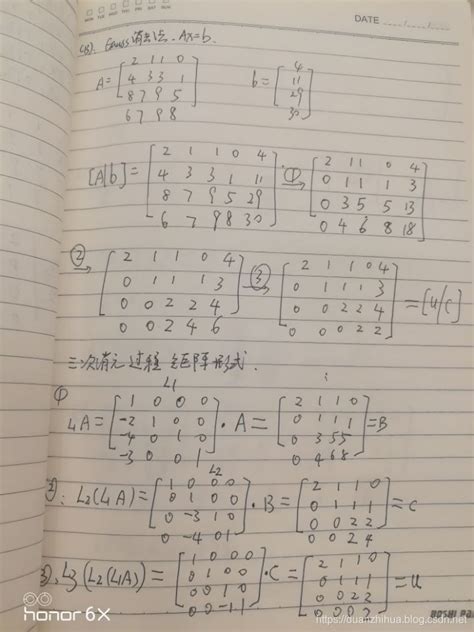 DATE
(3). Gauss消去法. Ax=b.
A=[2 1 1 0
4 3 3 1
8 7 9 5
6 7 9 8]
b=[4
11
29
30]
[A|b]=[2 1 1 0 4
4 3 3 1 11
8 7 9 5 29
6 7 9 8 30]
①→[2 1 1 0 4
0 1 1 1 3
0 3 5 5 13
0 4 6 8 18]
②→[2 1 1 0 4
0 1 1 1 3
0 0 2 2 4
0 0 2 4 6]
③→[2 1 1 0 4
0 1 1 1 3
0 0 2 2 4
0 0 0 2 2]=[U|C]
三次消元过程矩阵形式.
① L1
L1A=[1 0 0 0
-2 1 0 0
-4 0 1 0
-3 0 0 1]·A=[2 1 1 0
0 1 1 1
0 3 5 5
0 4 6 8]=B
L2
②: L2(L1A)=[1 0 0 0
0 1 0 0
0 -3 1 0
0 -4 0 1]·B=[2 1 1 0
0 1 1 1
0 0 2 2
0 0 2 4]=C
③. L3(L2(L1A))=[1 0 0 0
0 1 0 0
0 0 1 0
0 0 -1 1]·C=[2 1 1 0
0 1 1 1
0 0 2 2
0 0 0 2]=U
honor 6X
https://duanzhihua.blog.csdn.net